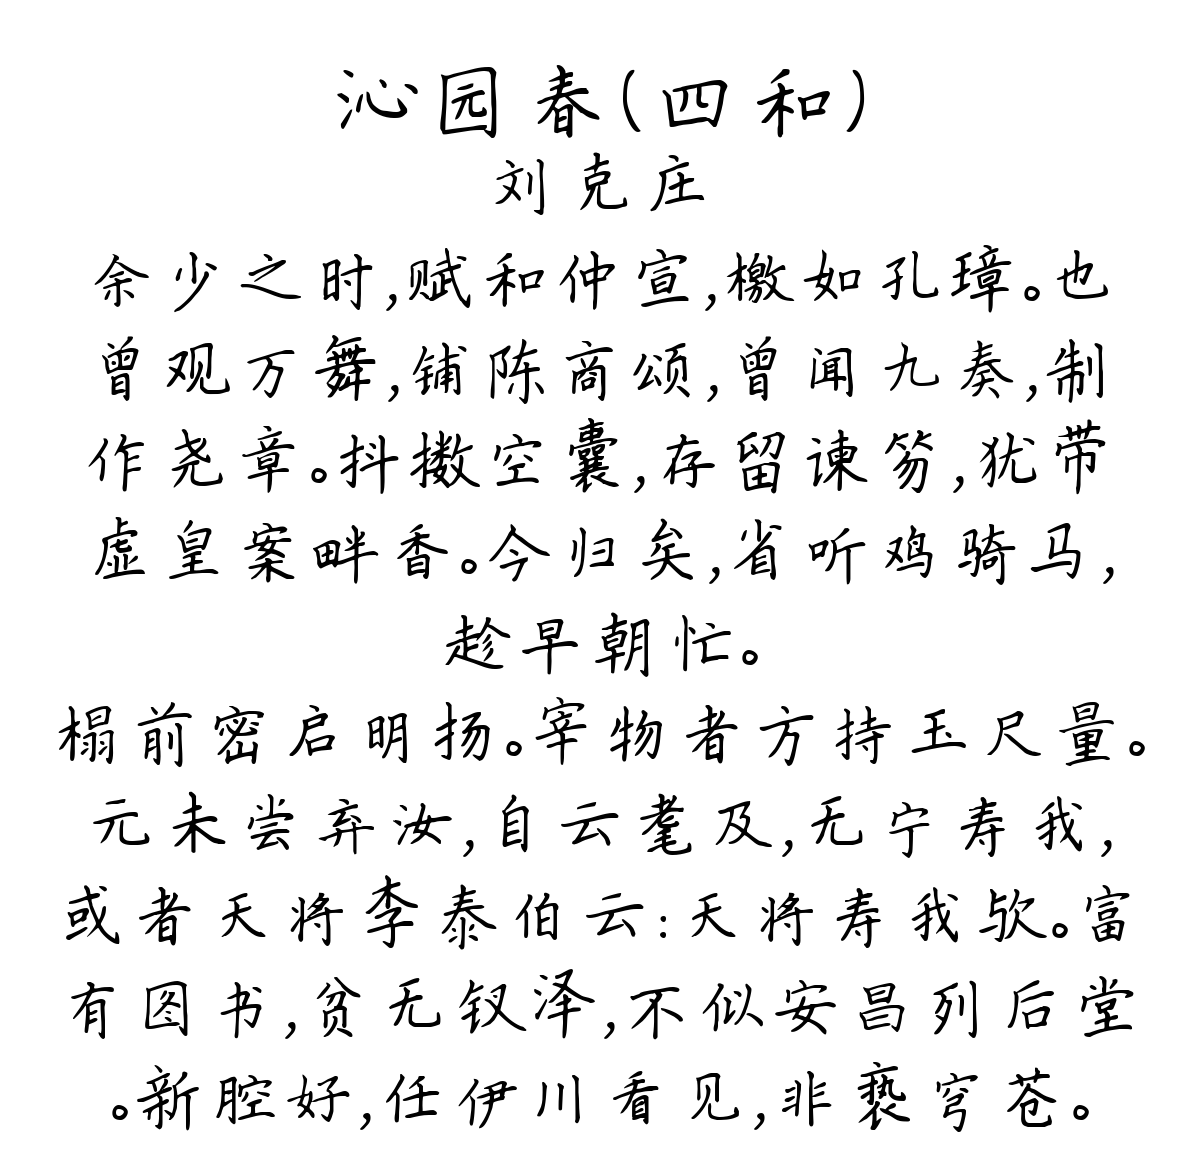 沁园春(四和)
刘克庄
余少之时,赋和仲宣,檄如孔璋。也
曾观万舞,铺陈商颂,曾闻九奏,制
作尧章。抖擞空囊,存留谏笏,犹带
虚皇案畔香。今归矣,省听鸡骑马,
趁早朝忙。
榻前密启明扬。宰物者方持玉尺量。
元未尝弃汝,自云耄及,无宁寿我,
或者天将李泰伯云:天将寿我欤。富
有图书,贫无钗泽,不似安昌列后堂
。新腔好,任伊川看见,非亵穹苍。